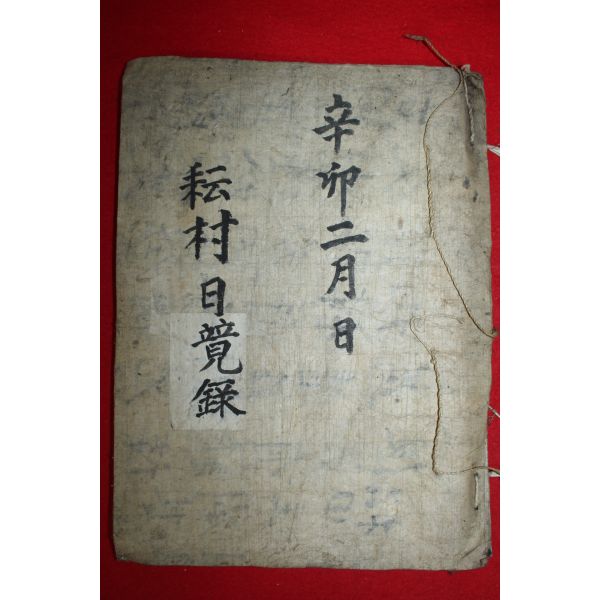 辛卯二月 日
耘村日覽錄